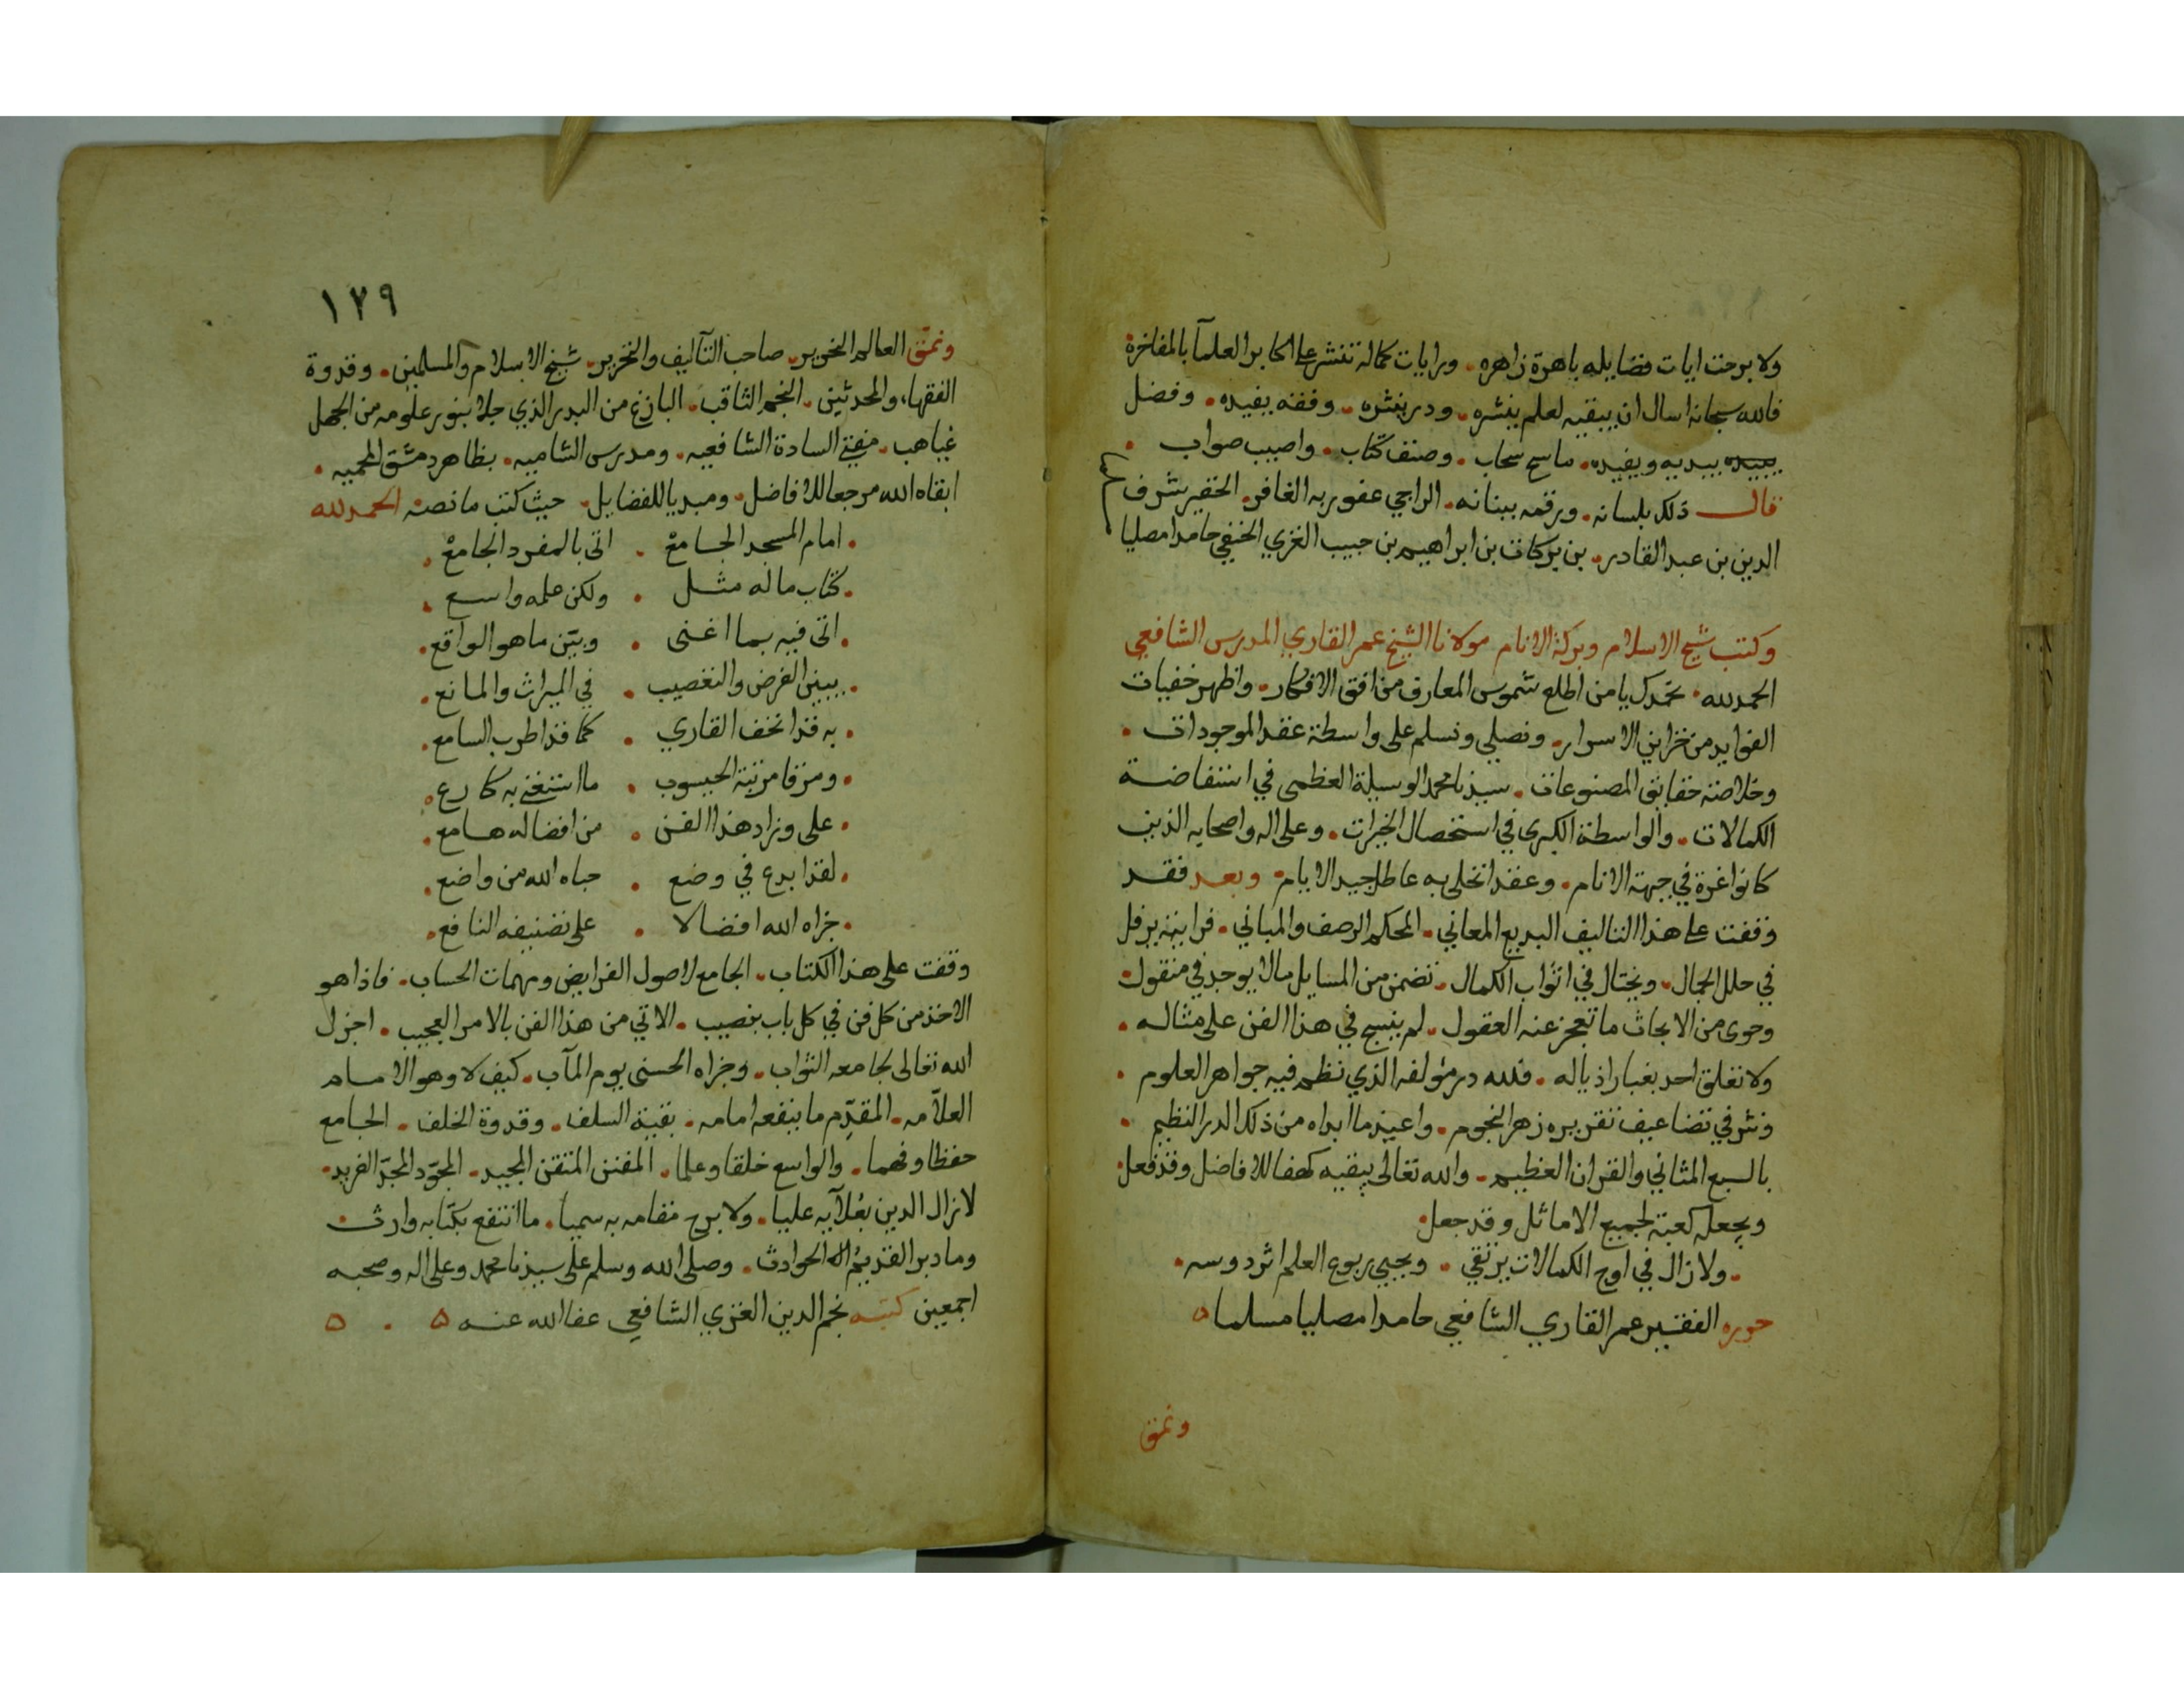 ولا برحت ايات فضايله باهرة زاهره. ورايات كماله تنشر على اكابر العلمآ بالمفاخرة
فالله سبحانه اسال ان يبقيه لعلم ينشره. ودر ينثره. وفقه يفيده. وفضل
يبديه ويفيده. ما سح سحاب. وصنف كتاب. واصيب صواب.
قال ذلك بلسانه. ورقمه ببنانه. الراجي عفو ربه الغافر. الحقير شرف
الدين بن عبد القادر. بن بركات بن ابراهيم بن حبيب الغزي الحنفي حامدا مصليا
مسلما
وكتب شيخ الاسلام وبركة الانام مولانا الشيخ عمر القاري المدرس الشافعي
الحمد لله. نحمدك يا من اطلع شموس المعارف من افق الافكار. واظهر خفيات
الفوايد من خزاين الاسرار. ونصلي ونسلم على واسطة عقد الموجودات.
وخلاصة حقايق المصنوعات. سيدنا محمد الوسيلة العظمى في استفاضة
الكمالات. والواسطة الكبرى في استحصال الخيرات. وعلى اله واصحابه الذين
كانوا غرة في جبهة الانام. وعقدا تحلى به عاطل جيد الايام. وبعد فقد
وقفت على هذا التاليف البديع المعاني. المحكم الرصف والمباني. فرايته يرفل
في حلل الجمال. ويختال في اثواب الكمال. تضمن من المسايل ما لا يوجد في منقول.
وحوى من الابحاث ما تعجز عنه العقول. لم ينسج في هذا الفن على مثاله.
ولا تعلق احد بغبار اذياله. فلله در مؤلفه الذي نظم فيه جواهر العلوم.
ونثر في تضاعيف تقريره زهر النجوم. واعيذ ما ابداه من ذلك الدر النظيم.
بالسبع المثاني والقران العظيم. والله تعالى يبقيه كهفا للافاضل وقد فعل.
ويجعله كعبة لجميع الاماثل وقد جعل.
. ولا زال في اوج الكمالات يرتقي. ويحيي ربوع العلم اثر دروسه.
حرره الفقير عمر القاري الشافعي حامدا مصليا مسلما ٥
ونمق
١٢٩
ونمق العالم النحرير. صاحب التآليف والتحرير. شيخ الاسلام والمسلمين. وقدوة
الفقهاء والمحدثين. النجم الثاقب. البازغ من البدر الذي جلا بنور علومه من الجهل
غياهب. مفتي السادة الشافعيه. ومدرس الشاميه. بظاهر دمشق المحميه.
ابقاه الله مرجعا للافاضل. ومبديا للفضايل. حيث كتب ما نصه الحمد لله
. امام المسجد الجامع . اتى بالمفرد الجامع.
. كتاب ماله مثل . ولكن علمه واسع.
. اتى فيه بما اغنى . وبيّن ما هو الواقع.
. يبين الفرض والتعصيب . في الميراث والمانع.
. به قد اتحف القاري . كما قد اطرب السامع.
. ومن قامر تبة الحيسوب . ما استغنى به كارع.
. على وراد هذا الفن . من افضاله هامع.
. لقد ابدع في وضع . حباه الله من واضع.
. جزاه الله افضالا . على تصنيفه النافع.
وقفت على هذا الكتاب. الجامع لاصول الفرايض ومهمات الحساب. فاذا هو
الاخذ من كل فن في كل باب بنصيب. الاتي من هذا الفن بالامر العجيب. اجزل
الله تعالى لجامعه الثواب. وجزاه الحسنى يوم المآب. كيف لا وهو الامام
العلّامه. المقدّم ما ينفعه امامه. بقية السلف. وقدوة الخلف. الجامع
حفظا وفهما. والواسع خلقا وعلما. المفنن المتقن المجيد. المجوّد المجدّ الفريد.
لا زال الدين بعُلآيه عليا. ولا برح مقامه به سميا. ما انتفع بكتابه وارث.
وما دبر القديمُ الحوادث. وصلى الله وسلم على سيدنا محمد وعلى اله وصحبه
اجمعين كتبه نجم الدين الغزي الشافعي عفا الله عنه ٥ . ٥